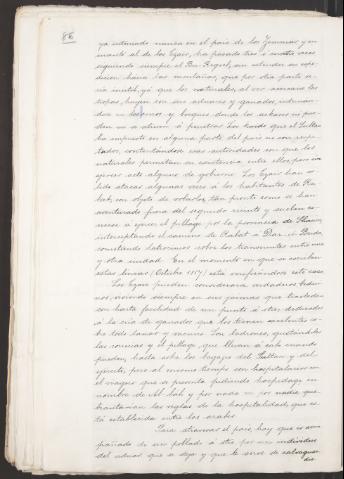 86
ya internado nunca en el pais de los Zemmur y en
cuanto al de los Zyair, ha pasado tres ó cuatro veces
siguiendo siempre el Bu-Regreb, sin estender su espe-
dicion hacia las montañas, que por otra parte se-
ria inutil, ya que los naturales, al ver acercarse las
tropas, huyen con sus aduares y ganados, internan-
dose en y bosques donde los ashears no pue-
den ni se atreven á penetrar los kaids que el Sultan
ha impuesto en alguna parte del pais no son respe-
tados, contentándose esas autoridades con que los
naturales permitan su existencia entre ellos, pero sin
ejercer acto alguno de gobierno. Los Zyair han so-
lido atacar algunas veces á los habitantes de Ra-
bat, con objeto de robarlos, tan pronto como se han
aventurado fuera del segundo recinto y suelen co-
rrerse á ejercer el pillage por la provincia de
interceptando el camino de Rabat á Dar-el-Beida
cometiendo latrocinios sobre los transeuntes entre una
y otra ciudad. En el momento en que se escriben
estas lineas (Octubre 1887) está verificándose este caso.
Los Zyair pueden considerarse verdaderos bedui-
nos, viviendo siempre en sus jaimas que trasladan
con harta facilidad de un punto á otro, dedicados
á la cria de ganados que los tienen excelentes so-
bre todo lanar y vacuno. Son ladrones, gustándoles
las correrias y el pillage, que llevan á cabo cuando
pueden, hasta sobre los bagages del Sultan y del
ejército, pero al mismo tiempo son hospitalarios con
el viagero que se presenta pidiendo hospedage en
nombre de Al-lah y por nada ni por nadie que-
brantarian las reglas de la hospitalidad, que es-
tá establecida entre los arabes.
Para atravesar el pais, hay que ir acom-
pañado de un poblado á otro por un individuo
del aduar que se deja y que le sirve de salvaguar-
dia